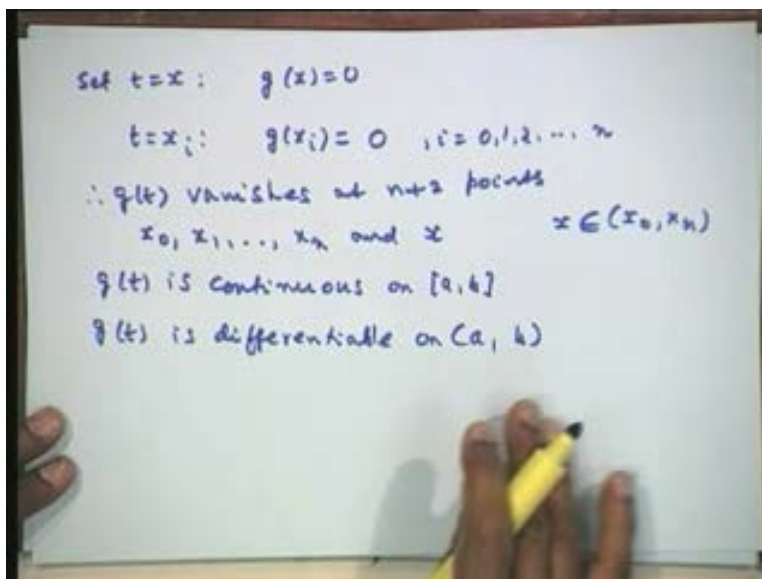 Set t=x : g(x)=0
t=xᵢ : g(xᵢ) = 0 , i = 0,1,2,..., n
∴ g(t) vanishes at n+2 points
x₀, x₁,..., xₙ and x x ∈ (x₀, xₙ)
g(t) is continuous on [a,b]
g(t) is differentiable on (a, b)